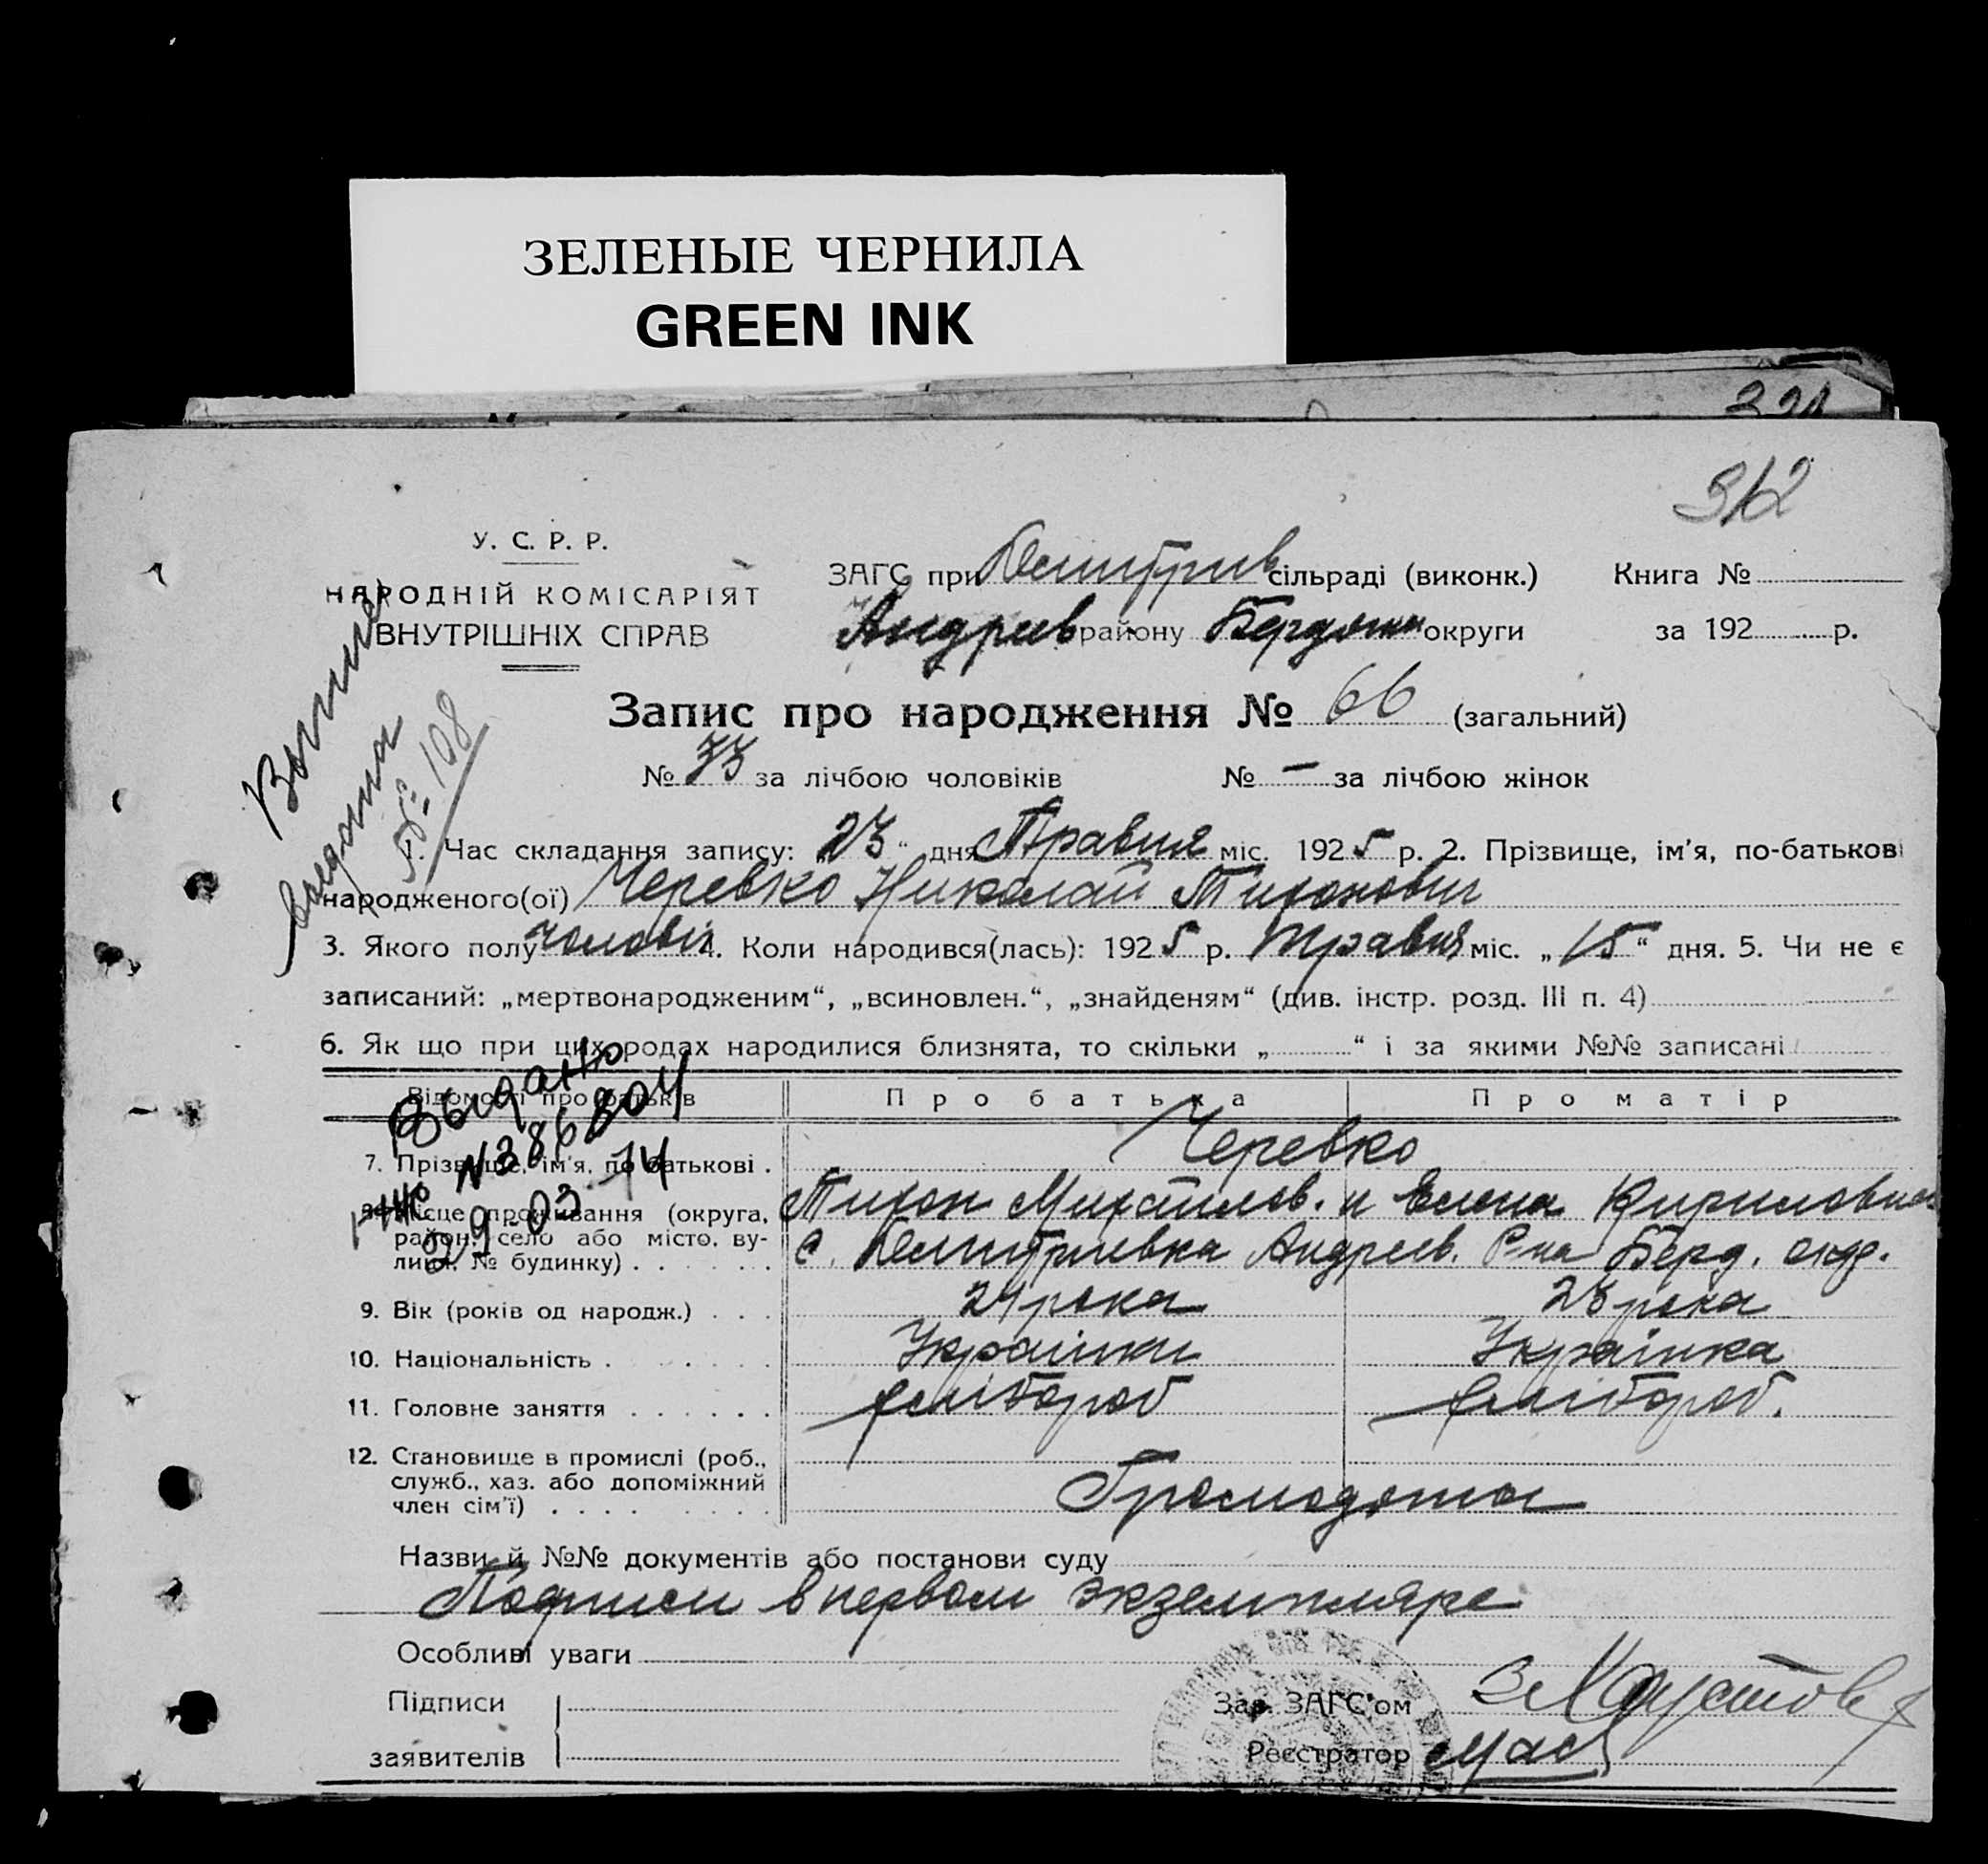 ЗЕЛЕНЫЕ ЧЕРНИЛА
GREEN INK
321
312
У. С. Р. Р.
НАРОДНІЙ КОМІСАРІЯТ
ВНУТРІШНІХ СПРАВ
ЗАГС при Дмитрив сільраді (виконк.) Книга №
Андреев району Бердянськ округи за 192 р.
Запис про народження № 66 (загальний)
№ 33 за лічбою чоловіків № — за лічбою жінок
видана
№ 108
1. Час складання запису: „23“ дня Травня міс. 1925 р. 2. Прізвище, ім'я, по-батькові
народженого(ої) Черевко Николай Тихонович
3. Якого полу чоловіч 4. Коли народився(лась): 1925 р. Травня міс. „15“ дня. 5. Чи не є
записаний: „мертвонародженим“, „всиновлен.“, „знайденям“ (див. інстр. розд. III п. 4)
6. Як що при цих родах народилися близнята, то скільки „ “ і за якими №№ записані
Відомості про батьків Про батька Про матір
Выдано
N386804
29.03.74
7. Прізвище, ім'я, по батькові . Черевко
Тихон Михайлов. и Елена Кириловна
8. Місце проживання (округа,
район, село або місто, ву-
лиця, № будинку) . . . . . . с. Дмитриевка Андреев. Р-на Берд. окр.
9. Вік (років од народж.) . . . 24 рока 23 рока
10. Національність . . . . . . Українки Українка
11. Головне заняття . . . . . . хлібороб хлібороб.
12. Становище в промислі (роб.,
служб., хаз. або допоміжний
член сім'ї) . . . . . . . .
Назви й №№ документів або постанови суду
Подписи в первом экземпляре
Особливі уваги
Підписи
заявителів
Зав. ЗАГС'ом
Реєстратор